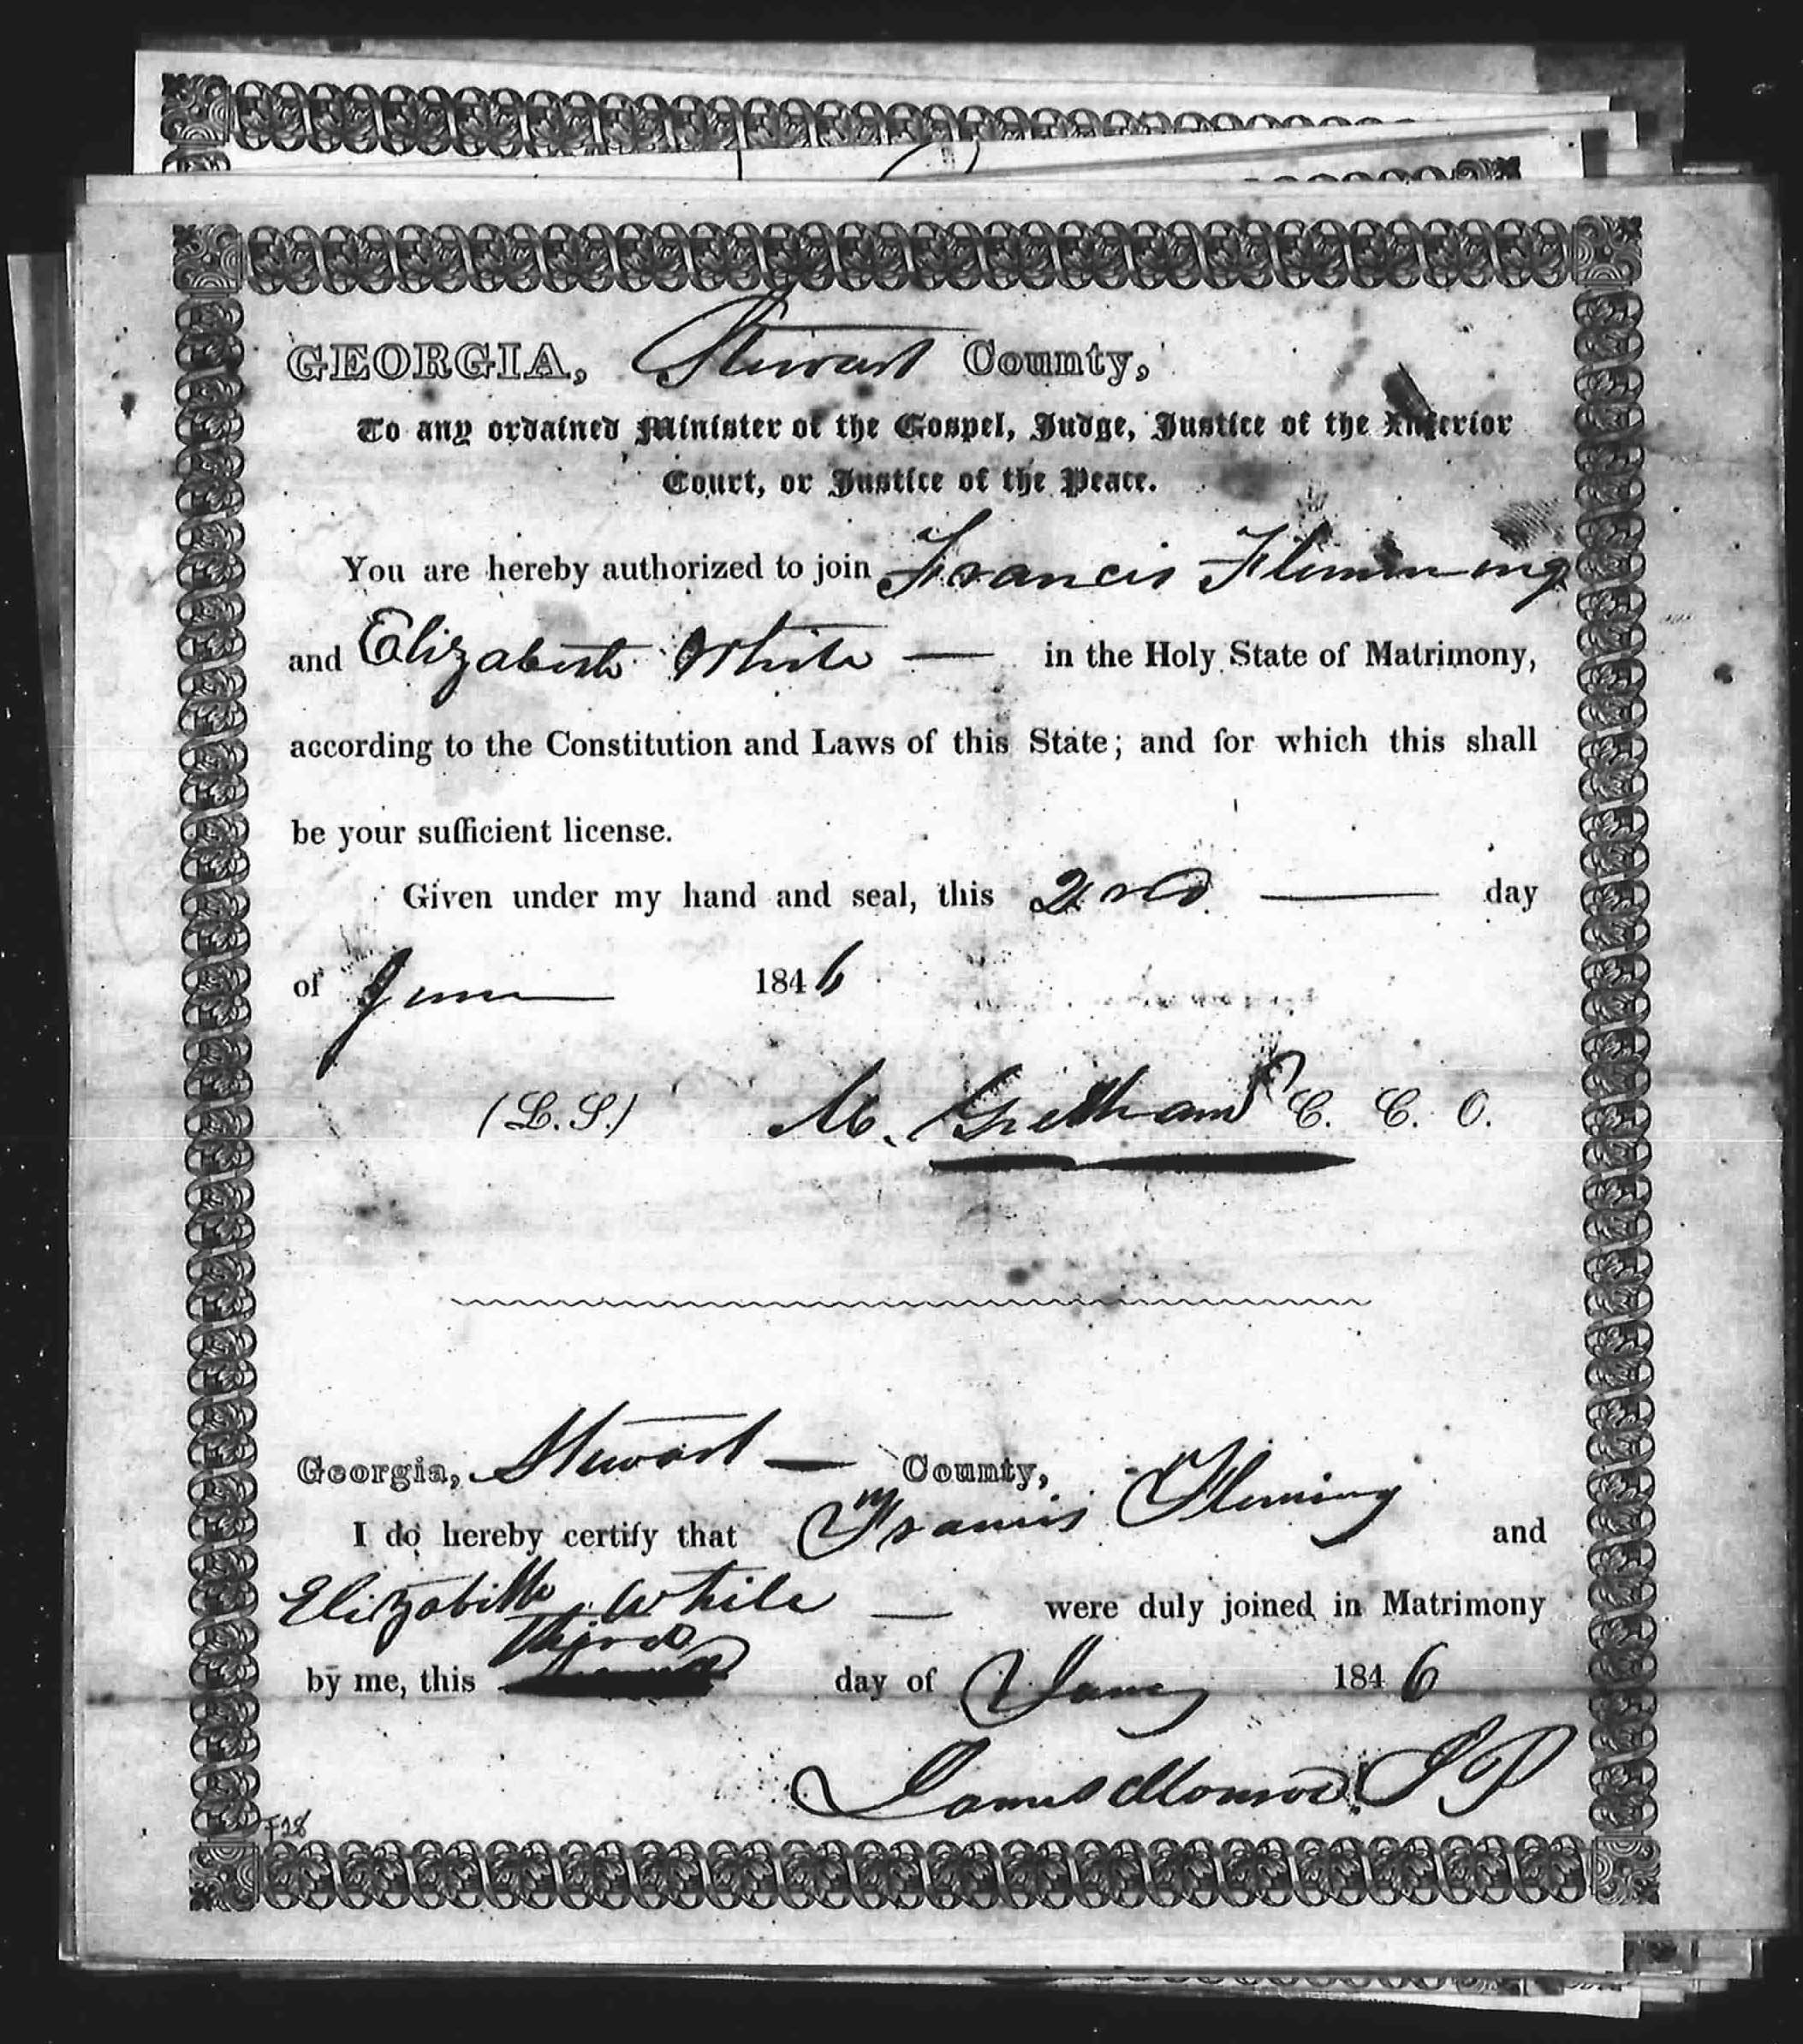 GEORGIA, Stewart County,
To any ordained Minister of the Gospel, Judge, Justice of the Inferior
Court, or Justice of the Peace.
You are hereby authorized to join Francis Flemming
and Elizabeth White — in the Holy State of Matrimony,
according to the Constitution and Laws of this State; and for which this shall
be your sufficient license.
Given under my hand and seal, this 2nd — day
of June 1846
(L.S.) M. Gresham C. C. O.
Georgia, Stewart — County,
I do hereby certify that Francis Fleming and
Elizabeth White — were duly joined in Matrimony
Third
by me, this day of June 1846
James Monroe J P
F28